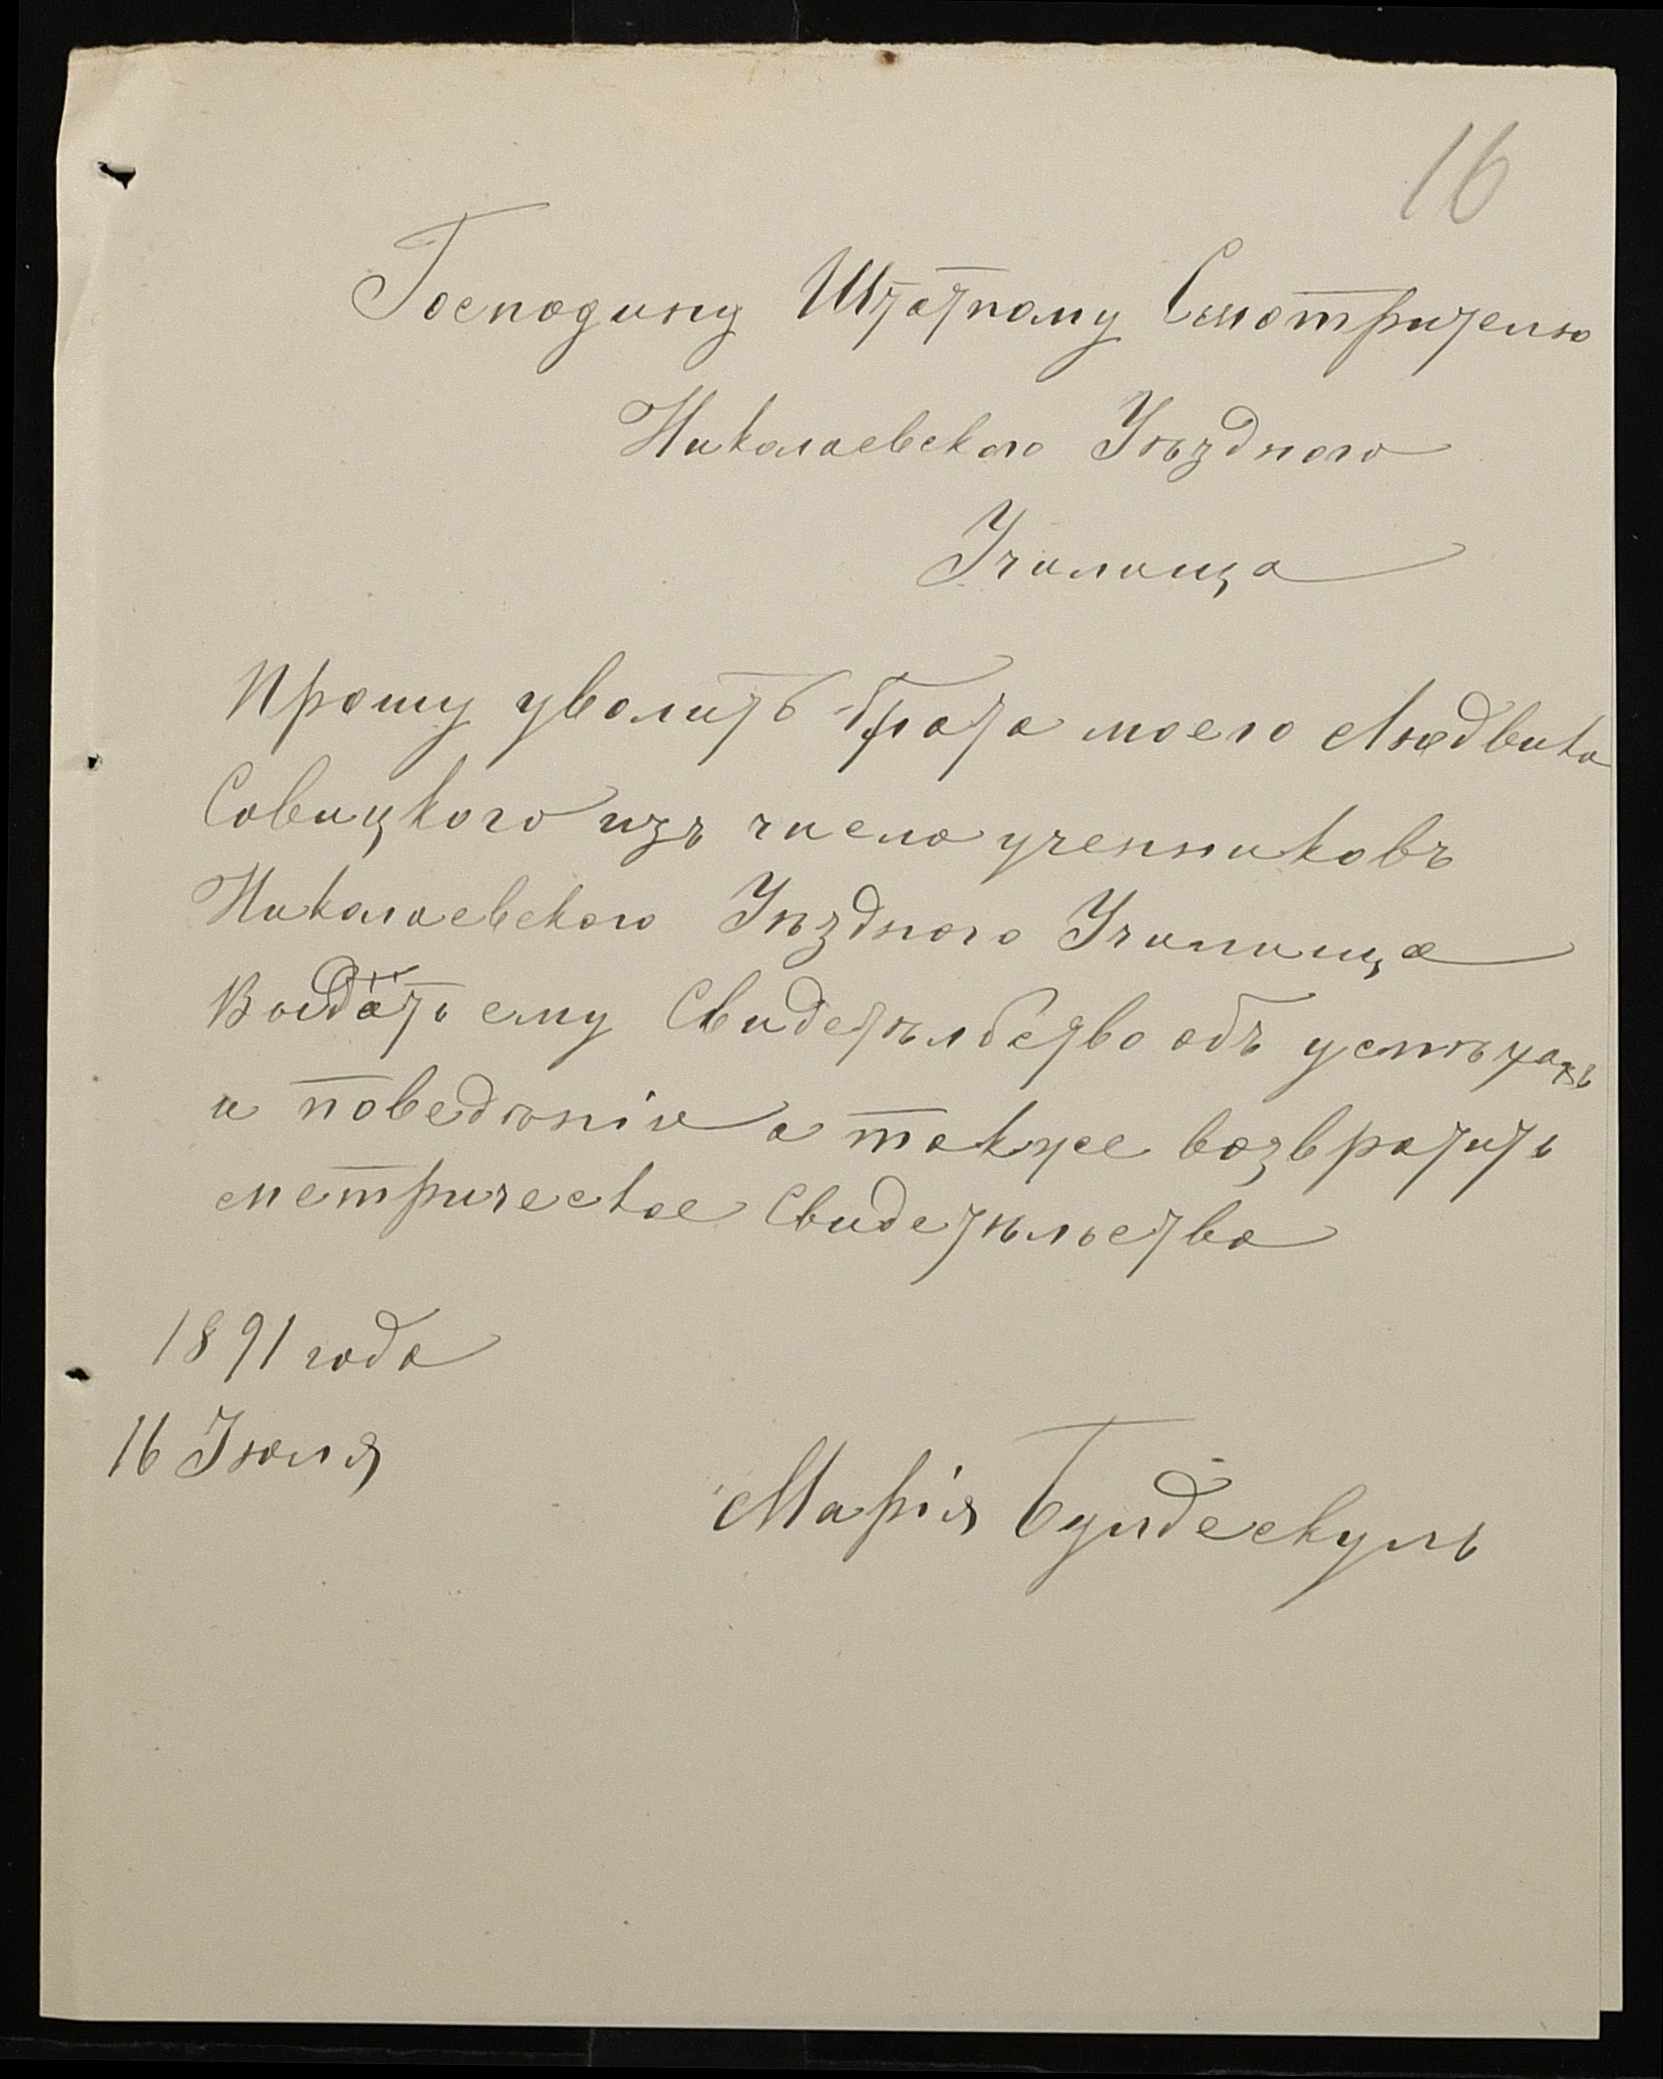 16
Господину Штатному Смотрителю
Николаевского Уѣздного
Училища
Прошу уволить брата моего Людвика
Совицкого изъ числа ученниковъ
Николаевского Уѣздного Училища
Выдать ему Свидетѣльство объ успѣхахъ
и поведѣніи а также возвратить
метрическое Свидетѣльство
1891 года
16 Іюля
Марія Булдескулъ